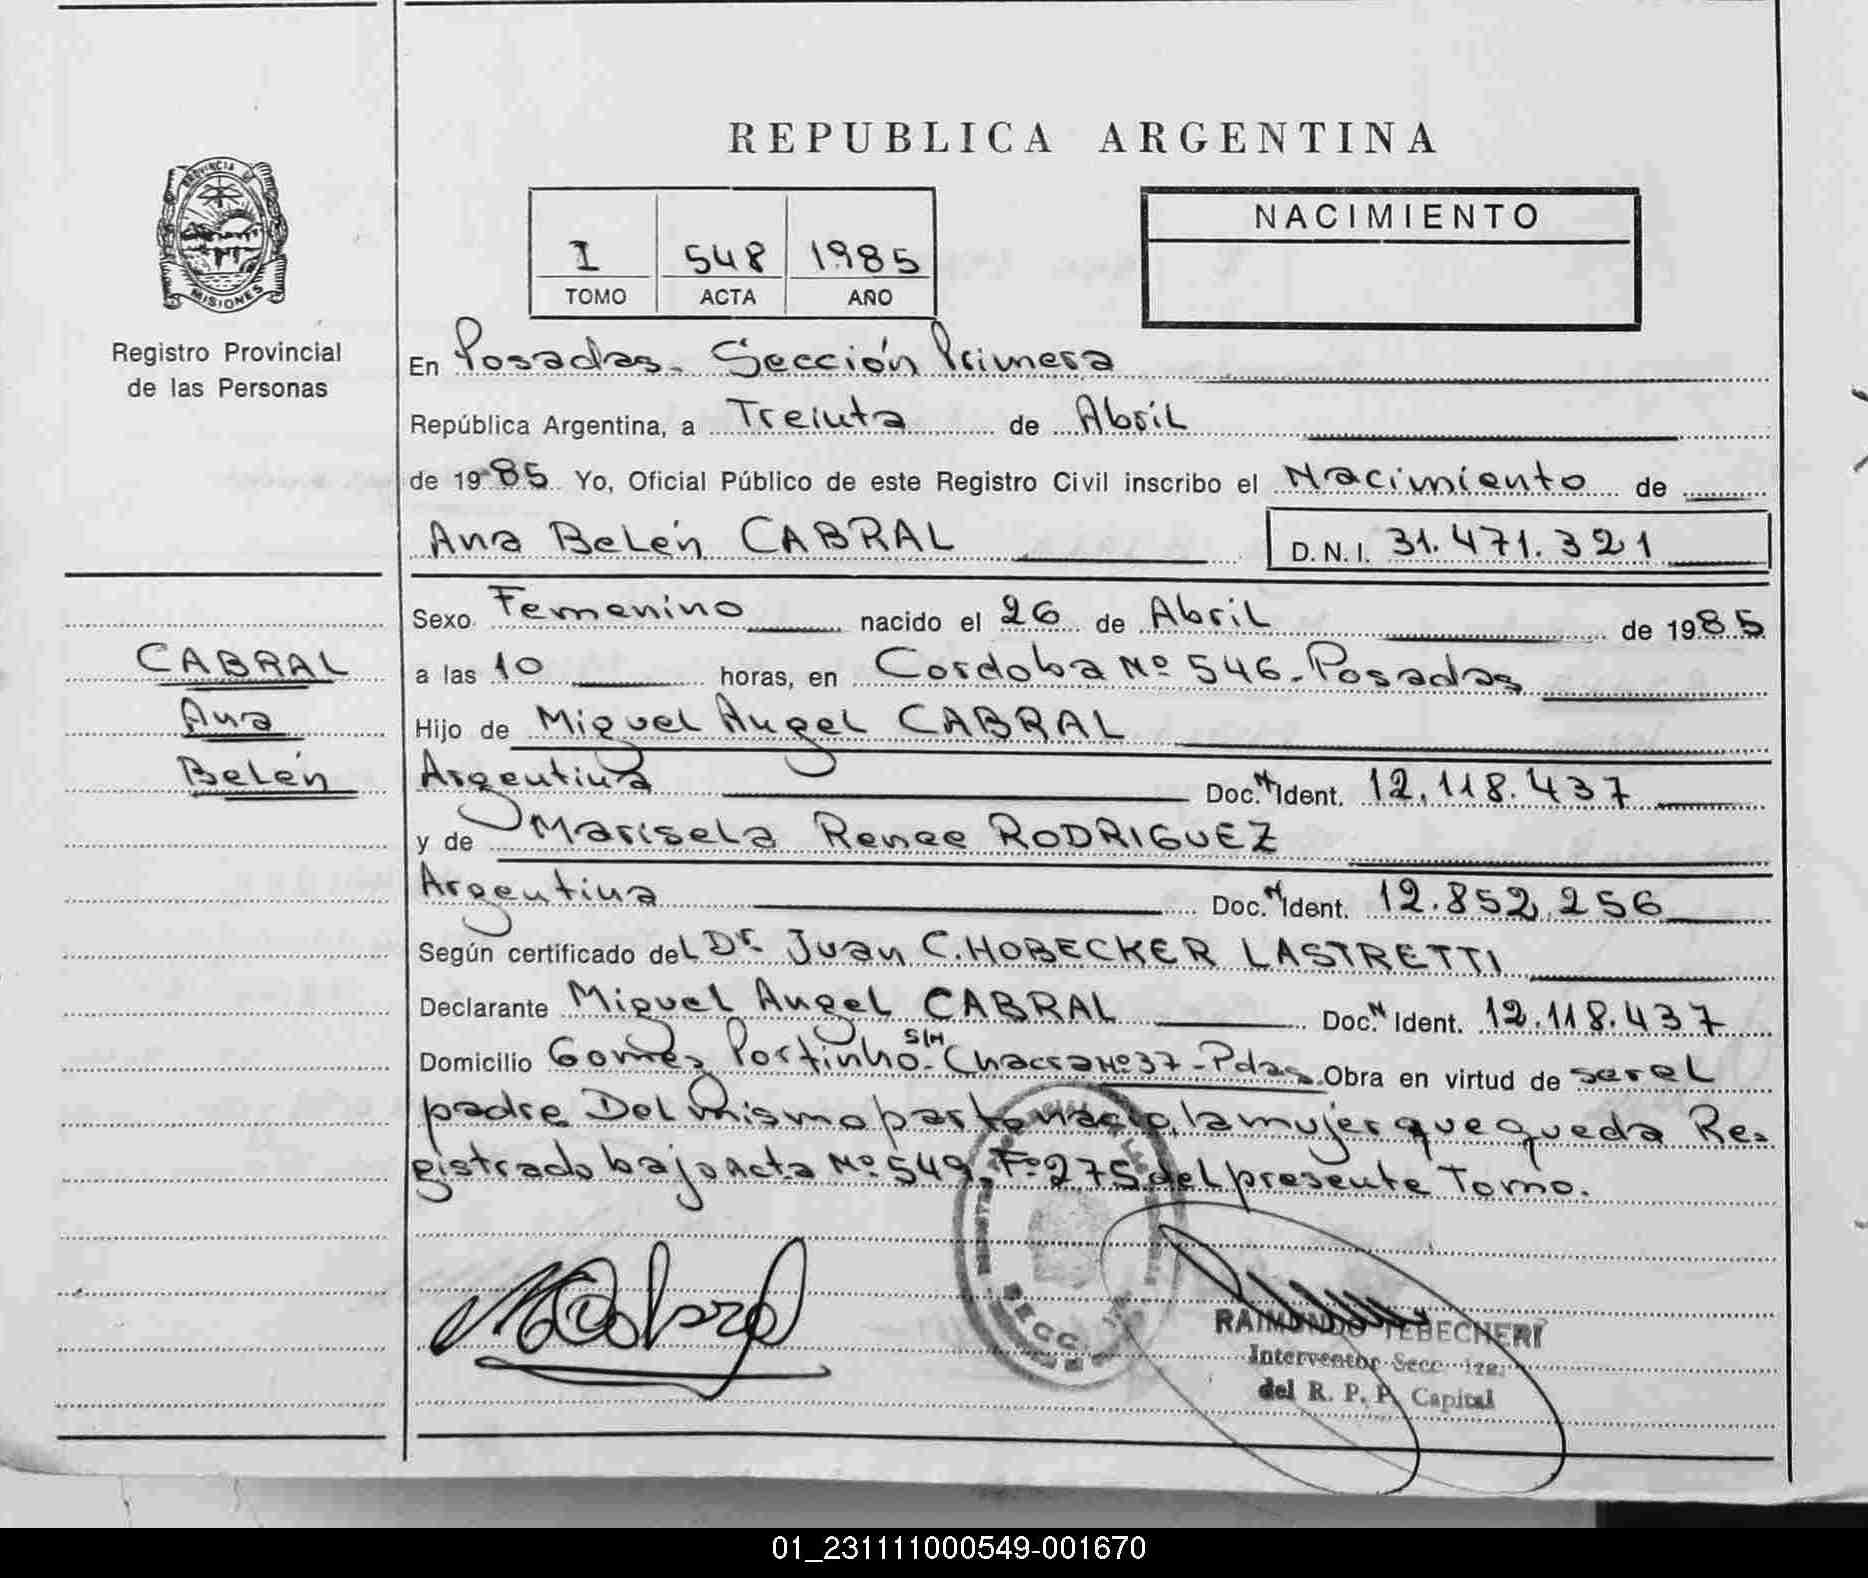 REPUBLICA ARGENTINA
PROVINCIA DE
MISIONES
Registro Provincial
de las Personas
I 548 1985
TOMO ACTA AÑO
NACIMIENTO
En Posadas. Sección Primera
República Argentina, a Treinta de Abril
de 1985 Yo, Oficial Público de este Registro Civil inscribo el Nacimiento de
Ana Belén CABRAL D.N.I. 31.471.321
Sexo Femenino nacido el 26 de Abril de 1985
a las 10 horas, en Cordoba Nº 546-Posadas
Hijo de Miguel Angel CABRAL
Argentina Doc. N Ident. 12.118.437
y de Marisela Renee RODRIGUEZ
Argentina Doc. N Ident. 12.852.256
Según certificado del Dr. Juan C. HOBECKER LASTRETTI
Declarante Miguel Angel CABRAL Doc. N Ident. 12.118.437
Domicilio Gomez Portinho S/N - Chacra Nº 37 - Pdas. Obra en virtud de ser el
padre Del mismo parto nació, la mujer que queda Re-
gistrado bajo Acta Nº 549, Fº 275 del presente Tomo.
CABRAL
Ana
Belén
MCabral
SECC. 1ra.
RAIMUNDO TEBECHERI
Interventor Secc. 1ra.
del R. P. P. Capital
01_231111000549-001670